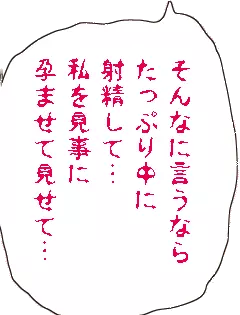 そんなに言うなら
たっぷり中に
射精して…
私を見事に
孕ませて見せて…